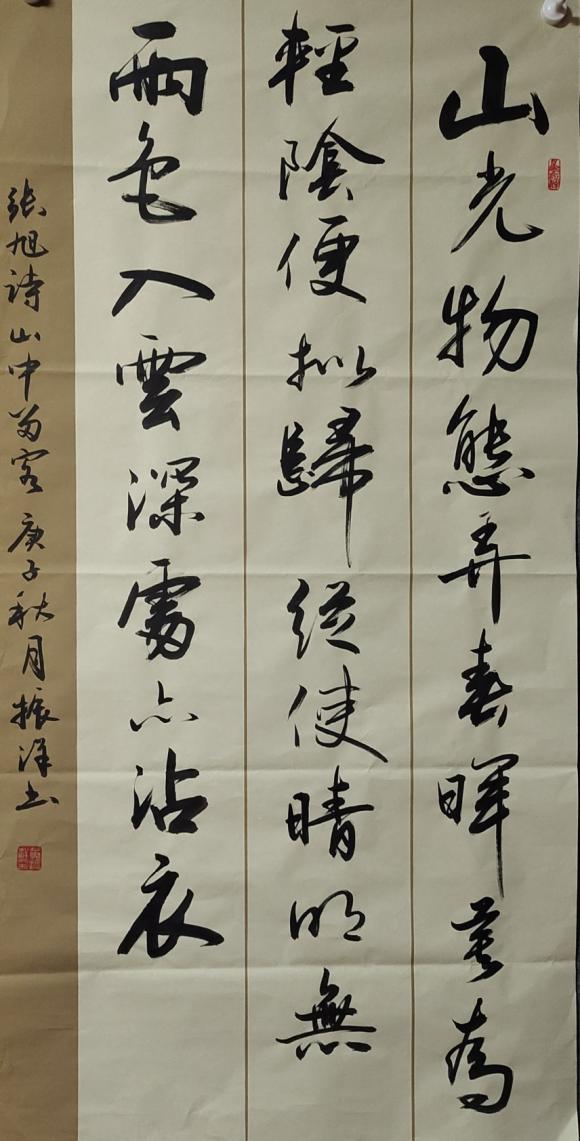 山光物態弄春暉莫為
輕陰便拟歸縱使晴明無
雨色入雲深處亦沾衣
張旭詩山中留客 庚子秋月振洋书